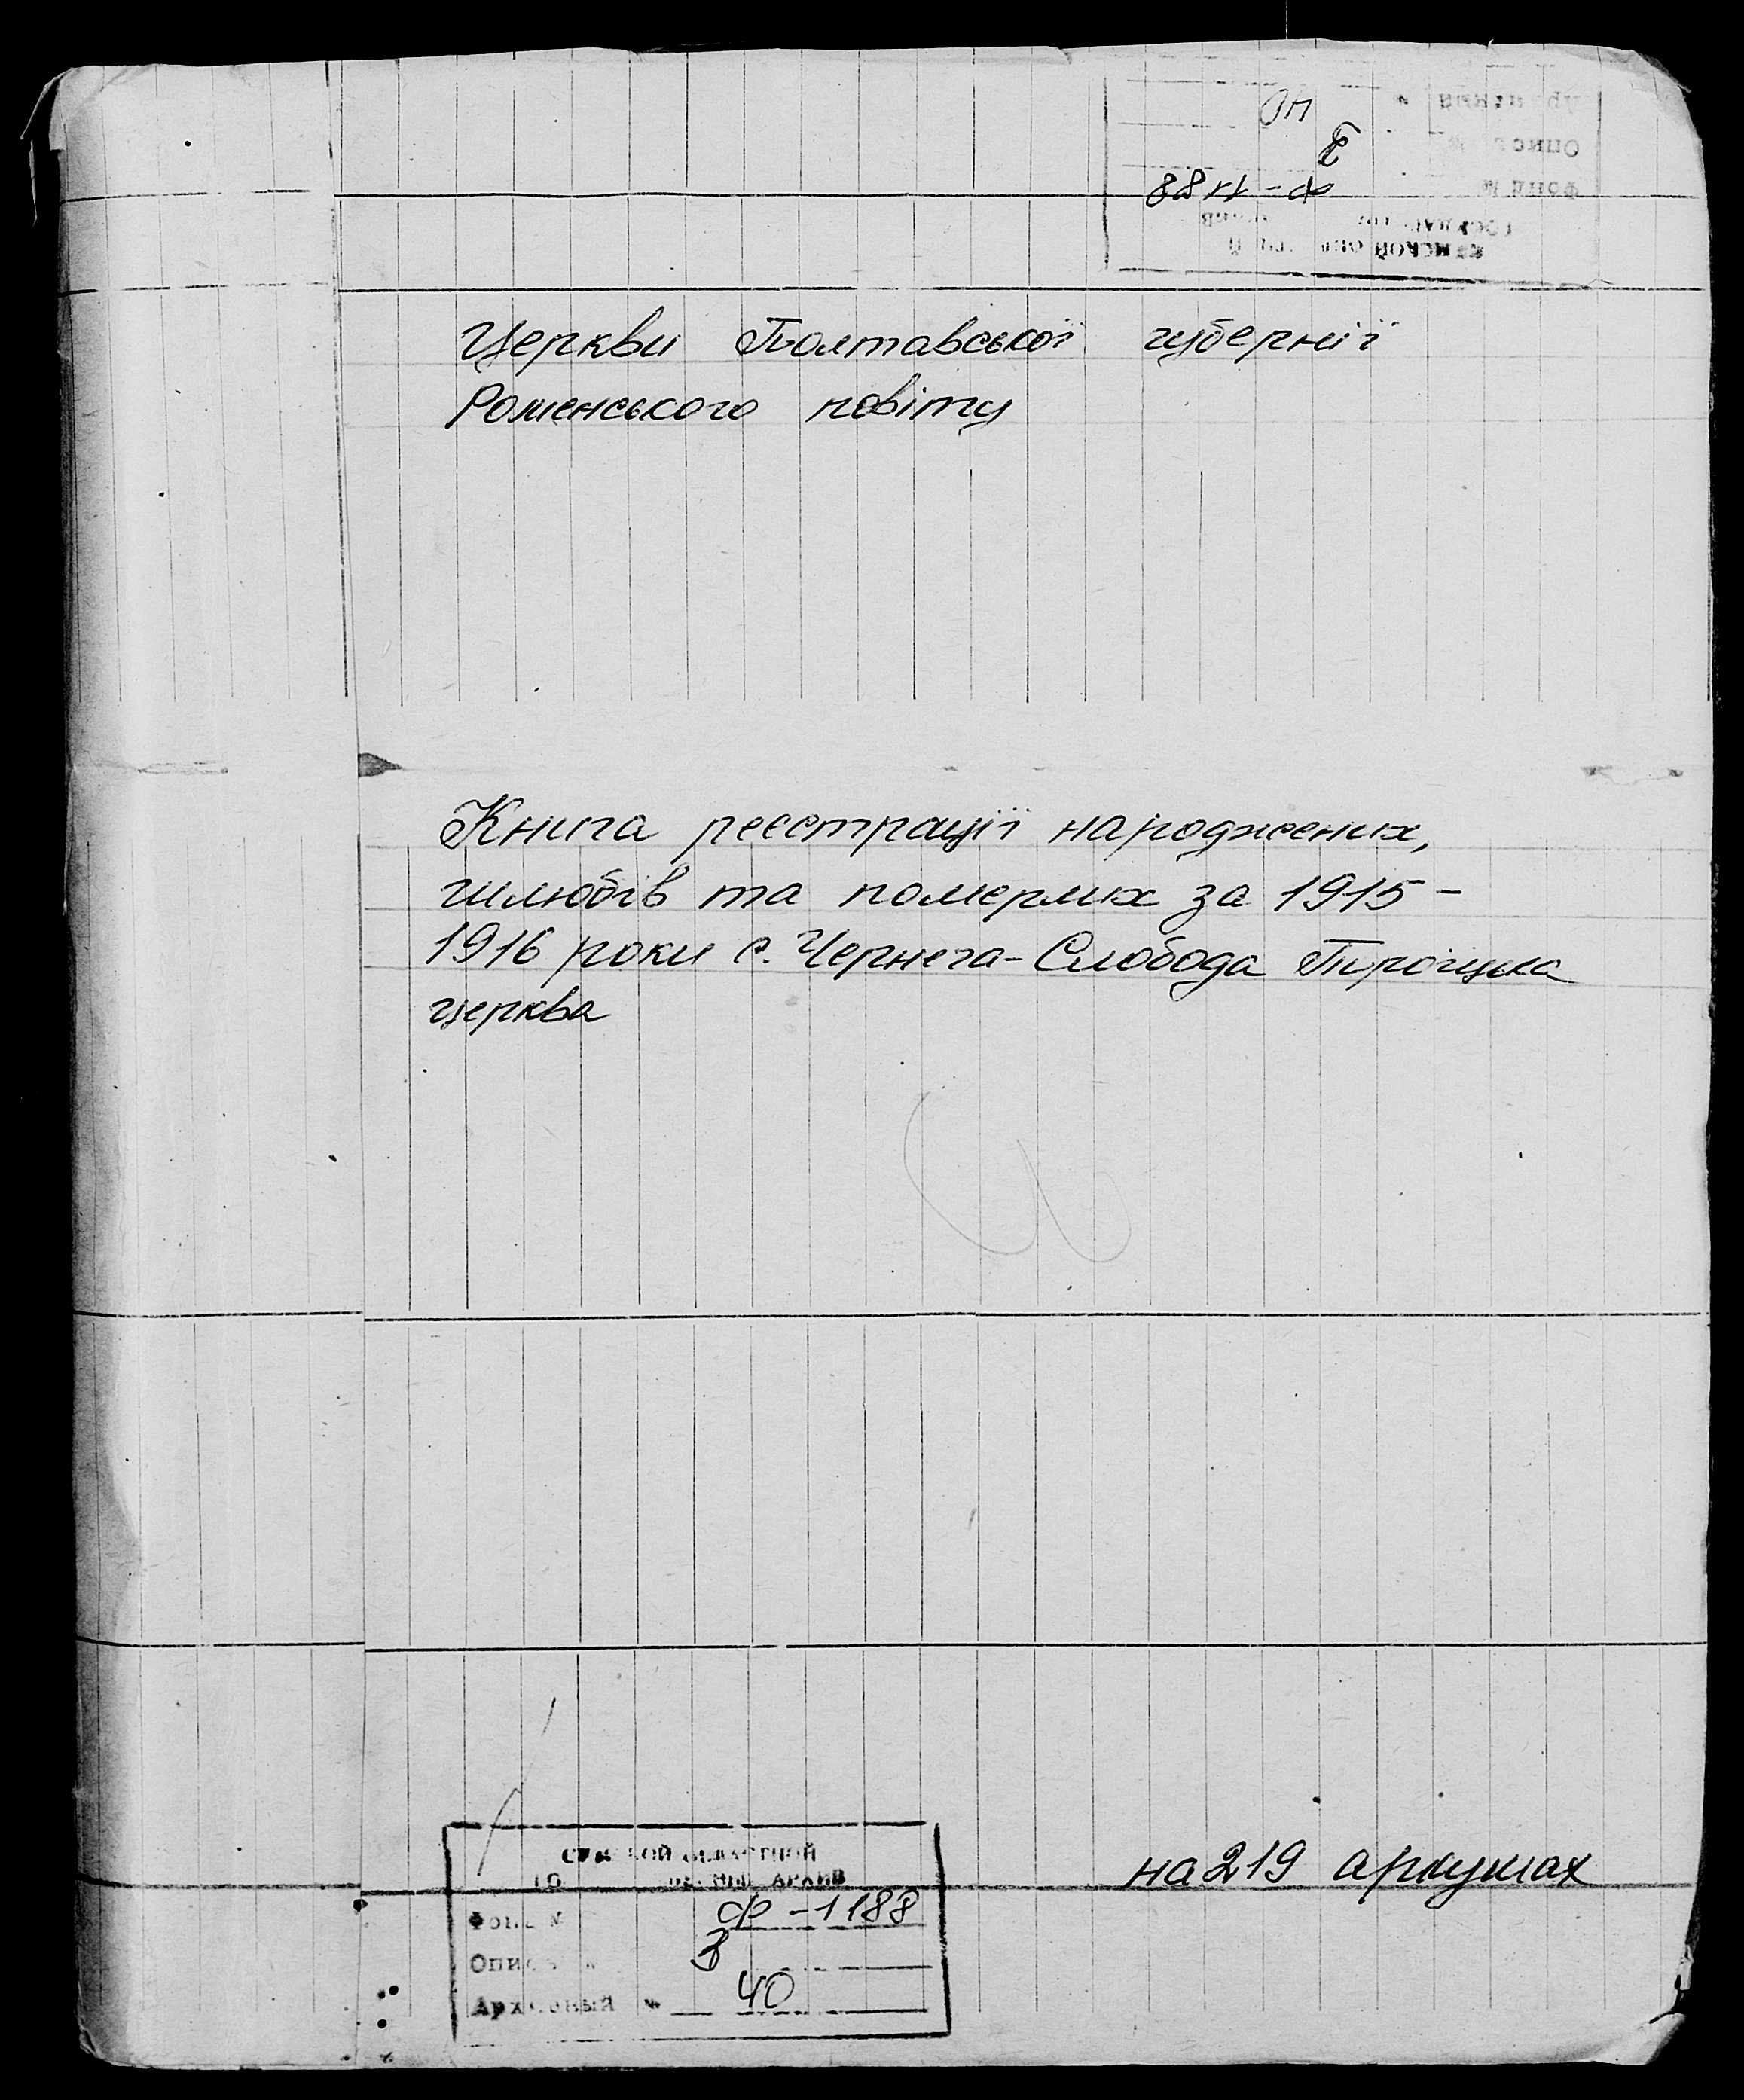 40
3
Ф-1188
Церкви Полтавської губернії
Роменського повіту
Книга реєстрації народжених,
шлюбів та померлих за 1915-
1916 роки с. Чернега-Слобода Троїцька
церква
на 219 аркушах
ОБЛАСТНОЙ
АРХИВ
Фонд № Ф-1188
Опись № 3
Архивный № 40